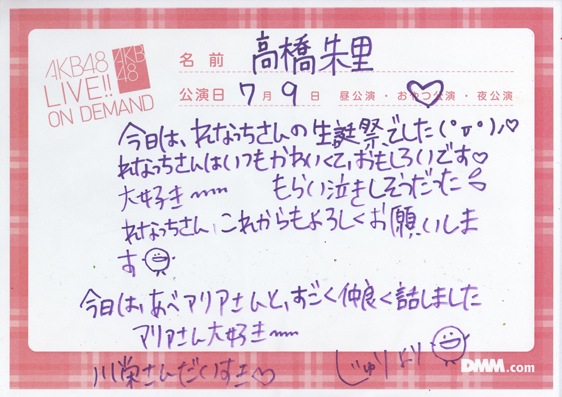 AKB48
LIVE!!
ON DEMAND
AKB
48
名前 高橋朱里
公演日 7月9日 昼公演・おやつ公演・夜公演
今日は、れなっちさんの生誕祭でした(°▽°)♡
れなっちさんはいつもかわいくて、おもしろいです♡
大好き〜〜 もらい泣きしそうだった
れなっちさん、これからもよろしくお願いしま
す
今日は、あべマリアさんと、すごく仲良く話しました
マリアさん大好き〜〜
川栄さんだいすき♡
じゅりより
DMM.com